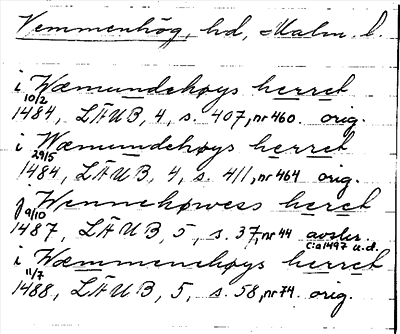 Vemmenhög, hd, Malm. l.
i Wæmundehøys herret
10/2
1484, LÄUB, 4, s. 407, nr 460. orig.
i Wæmundehøys herret
29/5
1484, LÄUB, 4, s. 411, nr 464. orig.
j Wennehøwess heret
9/10
1487, LÄUB, 5, s. 37, nr 44 avskr.
c:a 1497 u.d.
i Wæmmenehøys herret
11/7
1488, LÄUB, 5, s. 58, nr 74. orig.